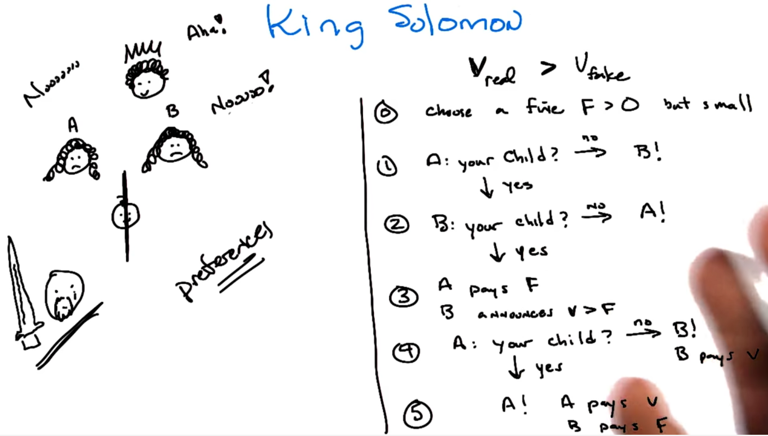 King Solomon
Aha!
Nooooooo
Nooooo!
A
B
preferences
V real > V fake
0 choose a fine F > 0 but small
1 A: your Child? no → B!
↓ yes
2 B: your child? no → A!
↓ yes
3 A pays F
B announces v > F
4 A: your child? no → B!
B pays v
↓ yes
5 A! A pays v
B pays F